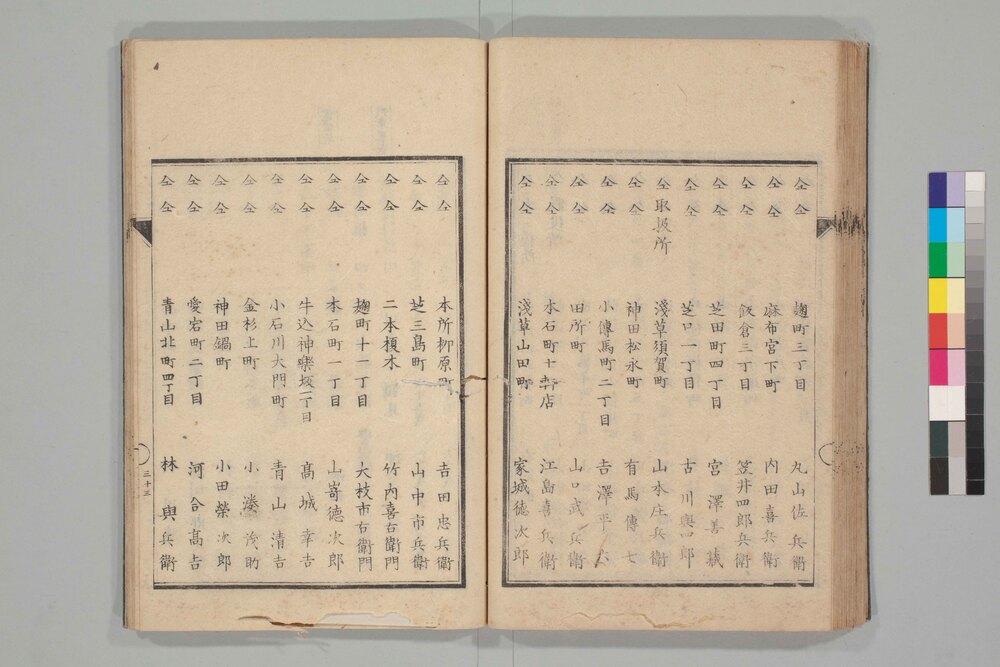 仝仝 麹町三丁目 丸山佐兵衛
仝仝 麻布宮下町 内田喜兵衛
仝仝 飯倉三丁目 笠井四郎兵衛
仝仝 芝田町四丁目 宮澤善藏
仝仝 芝口一丁目 古川輿四郎
仝取扱所 淺草須賀町 山本庄兵衛
仝仝 神田松永町 有馬傳七
仝仝 小傳馬町二丁目 吉澤平六
仝仝 田所町 山口武兵衛
仝仝 本石町十軒店 江島喜兵衛
仝仝 淺草山田町 家城德次郎
仝仝 本所柳原町 吉田忠兵衛
仝仝 芝三島町 山中市兵衛
仝仝 二本榎木 竹内喜右衛門
仝仝 麹町十一丁目 大枝市右衛門
仝仝 本石町一丁目 山嵜德次郎
仝仝 牛込神樂坂二丁目 髙城幸吉
仝仝 小石川大門町 青山清吉
仝仝 金杉上町 小湊
仝仝 神田鍋町 小田榮次郎
仝仝 愛宕町二丁目 河合髙吉
仝仝 青山北町四丁目 林輿兵衛
三十三